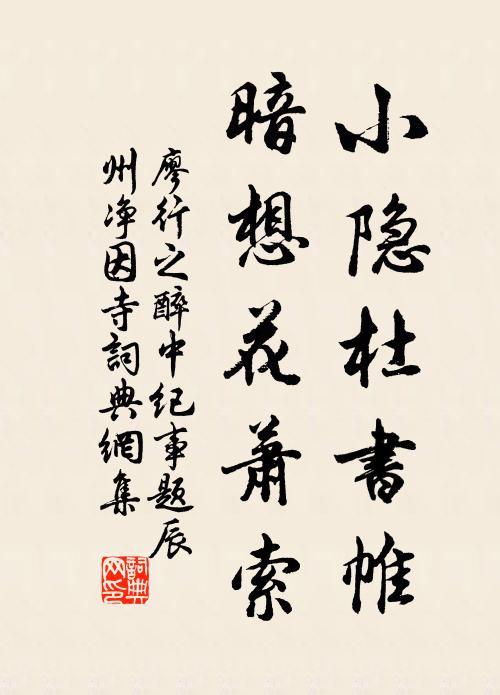 小隐杜書帷
暗想花蕭索
廖行之醉中纪事题辰
州净因寺詞典網集
詞典网印